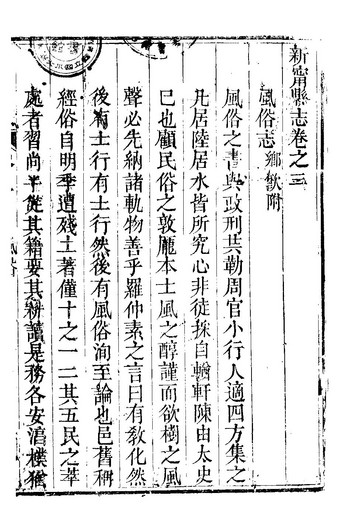 新甯縣志卷之三
風俗志 鄉飲附
風俗之書與政刑共勒周官小行人適四方集之
凡居陸居水皆所究心非徒採自輶軒陳由太史
已也顧民俗之敦龎本士風之醇謹而欲樹之風
聲必先納諸軌物善乎羅仲素之言曰有敎化然
後有士行有士行然後有風俗洵至論也邑舊稱
經俗自明季遭殘土著僅十之一二其五民之萃
處者習尚半從其籍要其耕讀是務各安湻樸猶